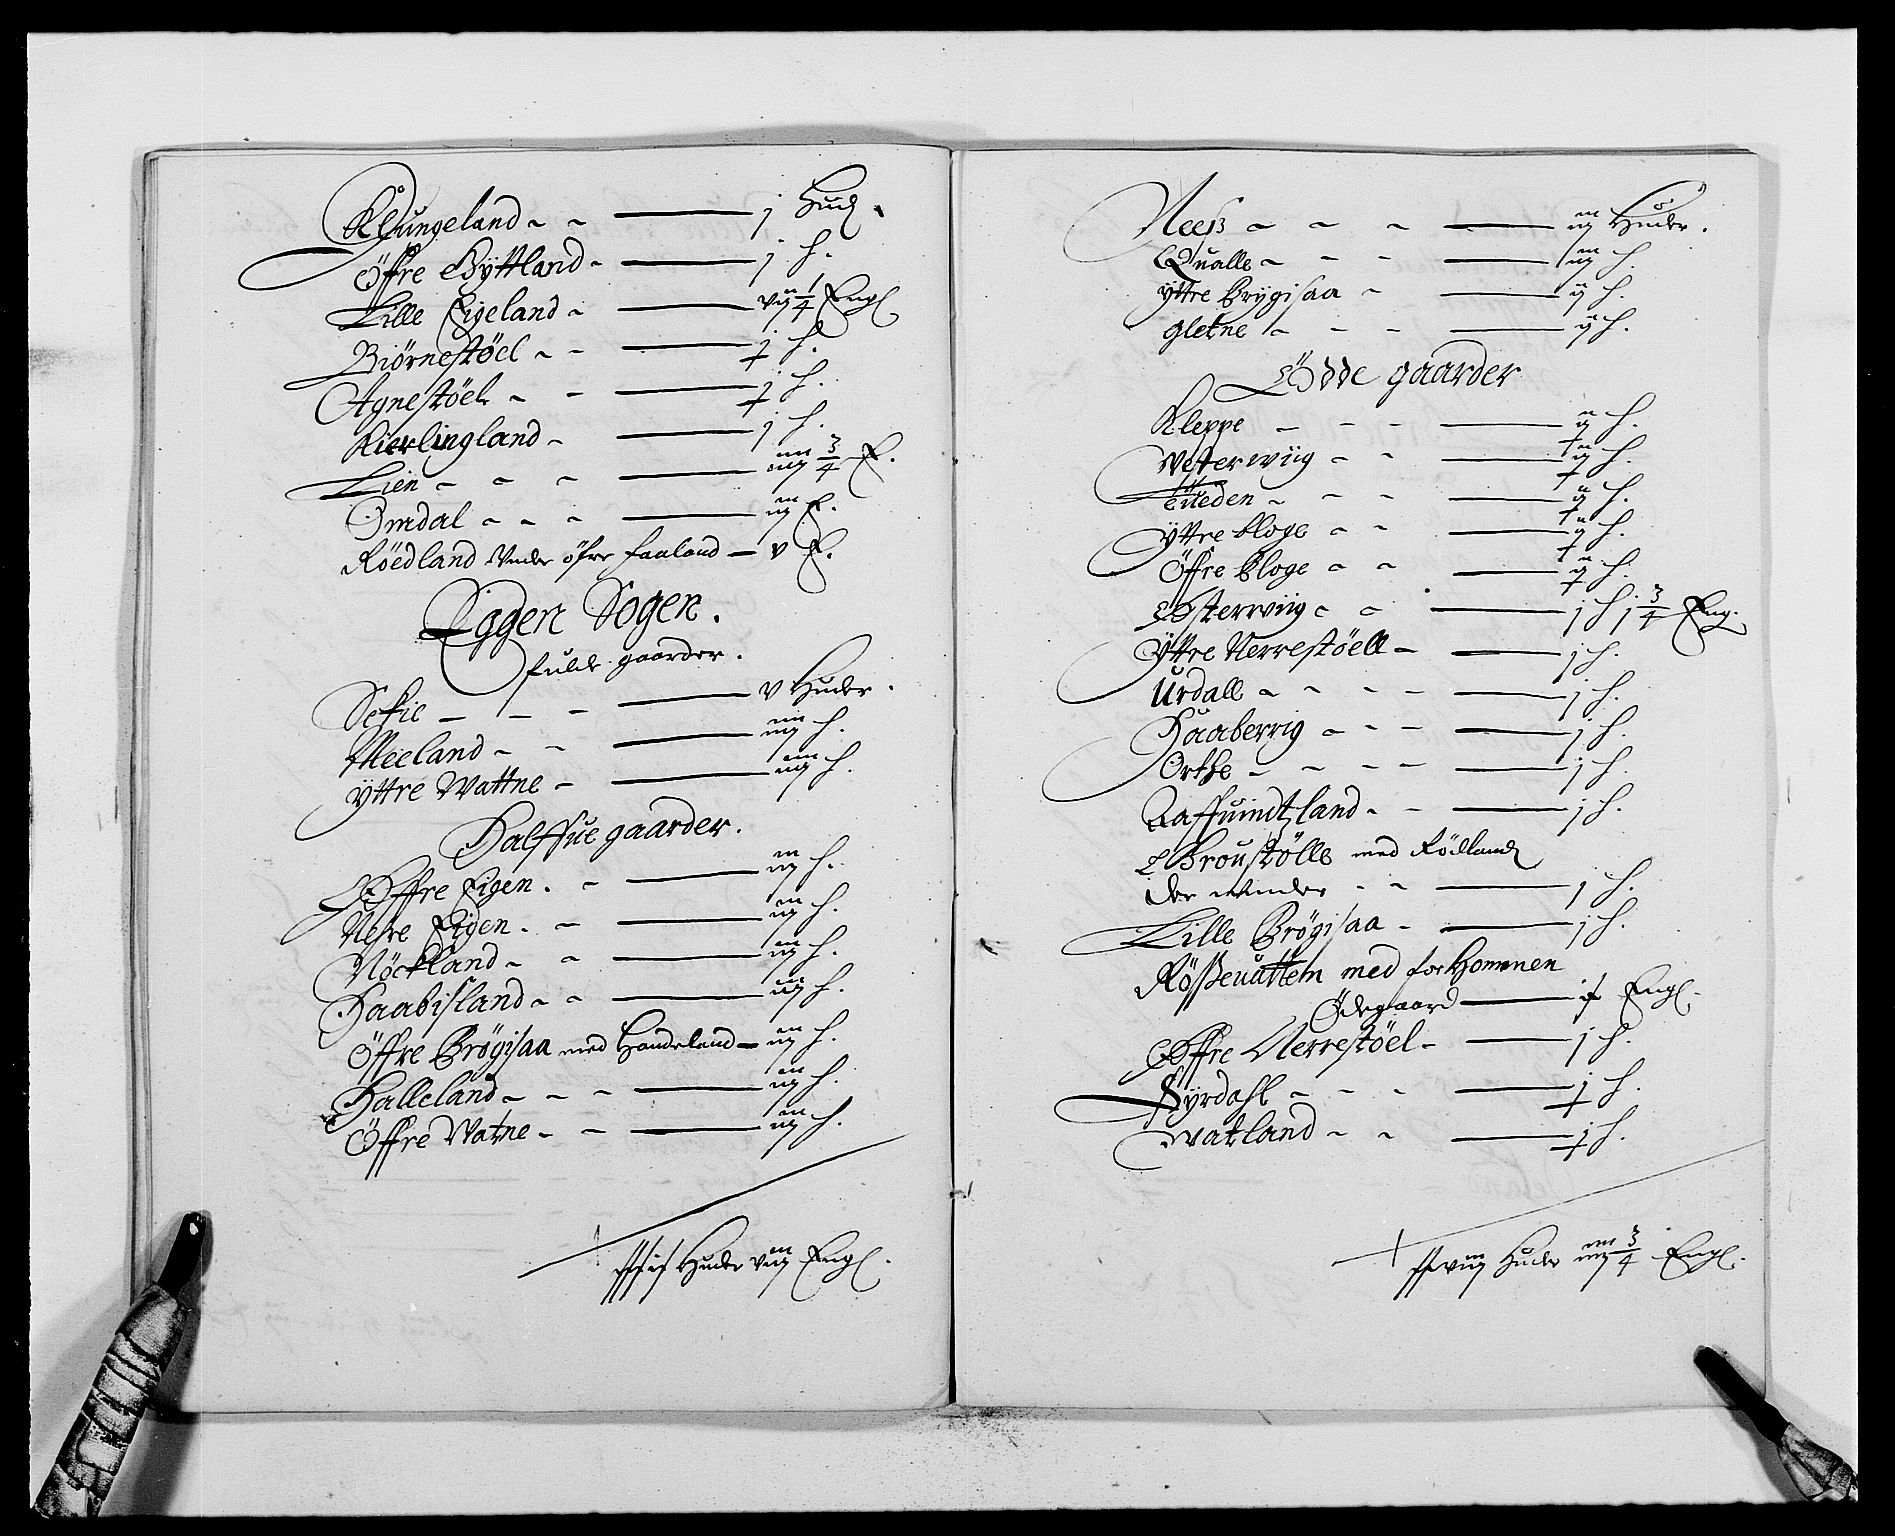 Klungeland - - — j Hud.
Öffre Byttland - — j h.
Lille Eigeland - — vij 1/4 Engl
Biörnestöel - - — j h.
Agnestöel - - — j h.
Kierlingland - — j h.
Lien - - - — iiij 3/4 E.
Omdal - - - — iij E.
Röedland Under öfre faaland — v E.
Eggen Sogen.
fulde gaarder.
Sefie - - - — v Huder.
Meeland - - — iiij h.
yttre Wattne - — iiij h.
Halffue gaarder.
Öffre Eigen. - — iij h.
Nesre Eigen. - — iij h.
Nöckland - - — iij h.
Haabisland - - — iij h.
Öffre Brögisaa med Handeland — iij h.
Halleland - - - — iij h.
Öffre Watne - - — iij h.
Huder viij Engl.
Neess - - - — iij Huder.
Qualle - - - — iij h.
yttre Brygisaa - — ij h.
gletne - - - — ij h.
Ödde gaarder
Kleppe - - - — ij h.
Vesterwiig - - — ij h.
Eueden - - - — ij h.
yttre kloge - - — ij h.
Öffre kloge - - — ij h.
Østerwiig - - — j h j 3/4 Eng.
Yttre Nerrestöell - — j h.
Urdall - - - - — j h.
Haaberrig - - - — j h.
Orthe - - - - — j h.
Raffuindtzland - - — j h.
Broustölle med Rödland
der under - - — j h.
Lille Brögisaa - — j h.
Rösseuattem med forHommen
Ödegaard — Engl.
Öffre Nerrestöel - — j h.
Fyrdahl - - - — j h.
Watland - - — j h.
Huder iiij 3/4 Engl.